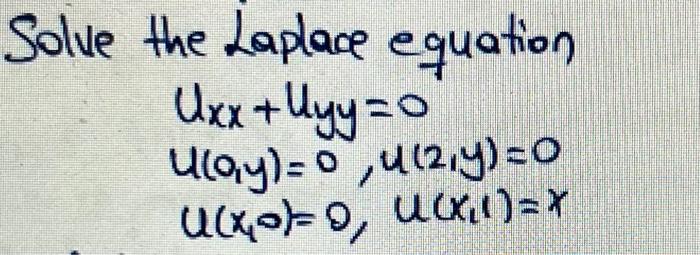 Solve the Laplace equation
Uxx + Uyy = 0
U(0,y) = 0 , U(2,y) = 0
U(x,0) = 0, U(x,1) = x